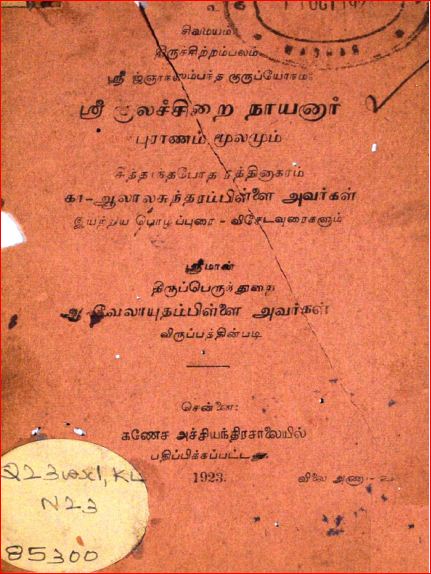 OCT 192
MADRAS
சிவமயம்
திருச்சிற்றம்பலம்
ஸ்ரீ ஜ்ஞானசம்பந்த குருப்யோநம:
ஸ்ரீ குலச்சிறை நாயனார்
புராணம் மூலமும்
சித்தாந்தபோத ரத்தினாகரம்
கா-ஆலாலசுந்தரம்பிள்ளை அவர்கள்
இயற்றிய பொழிப்புரை - விசேடவுரைகளும்
ஸ்ரீமான்
திருப்பெருந்துறை
வேலாயுதம்பிள்ளை அவர்கள்
விருப்பத்தின்படி
சென்னை:
கணேச அச்சியந்திரசாலையில்
பதிப்பிக்கப்பட்டது.
1923.
விலை அணா -
N23
85300